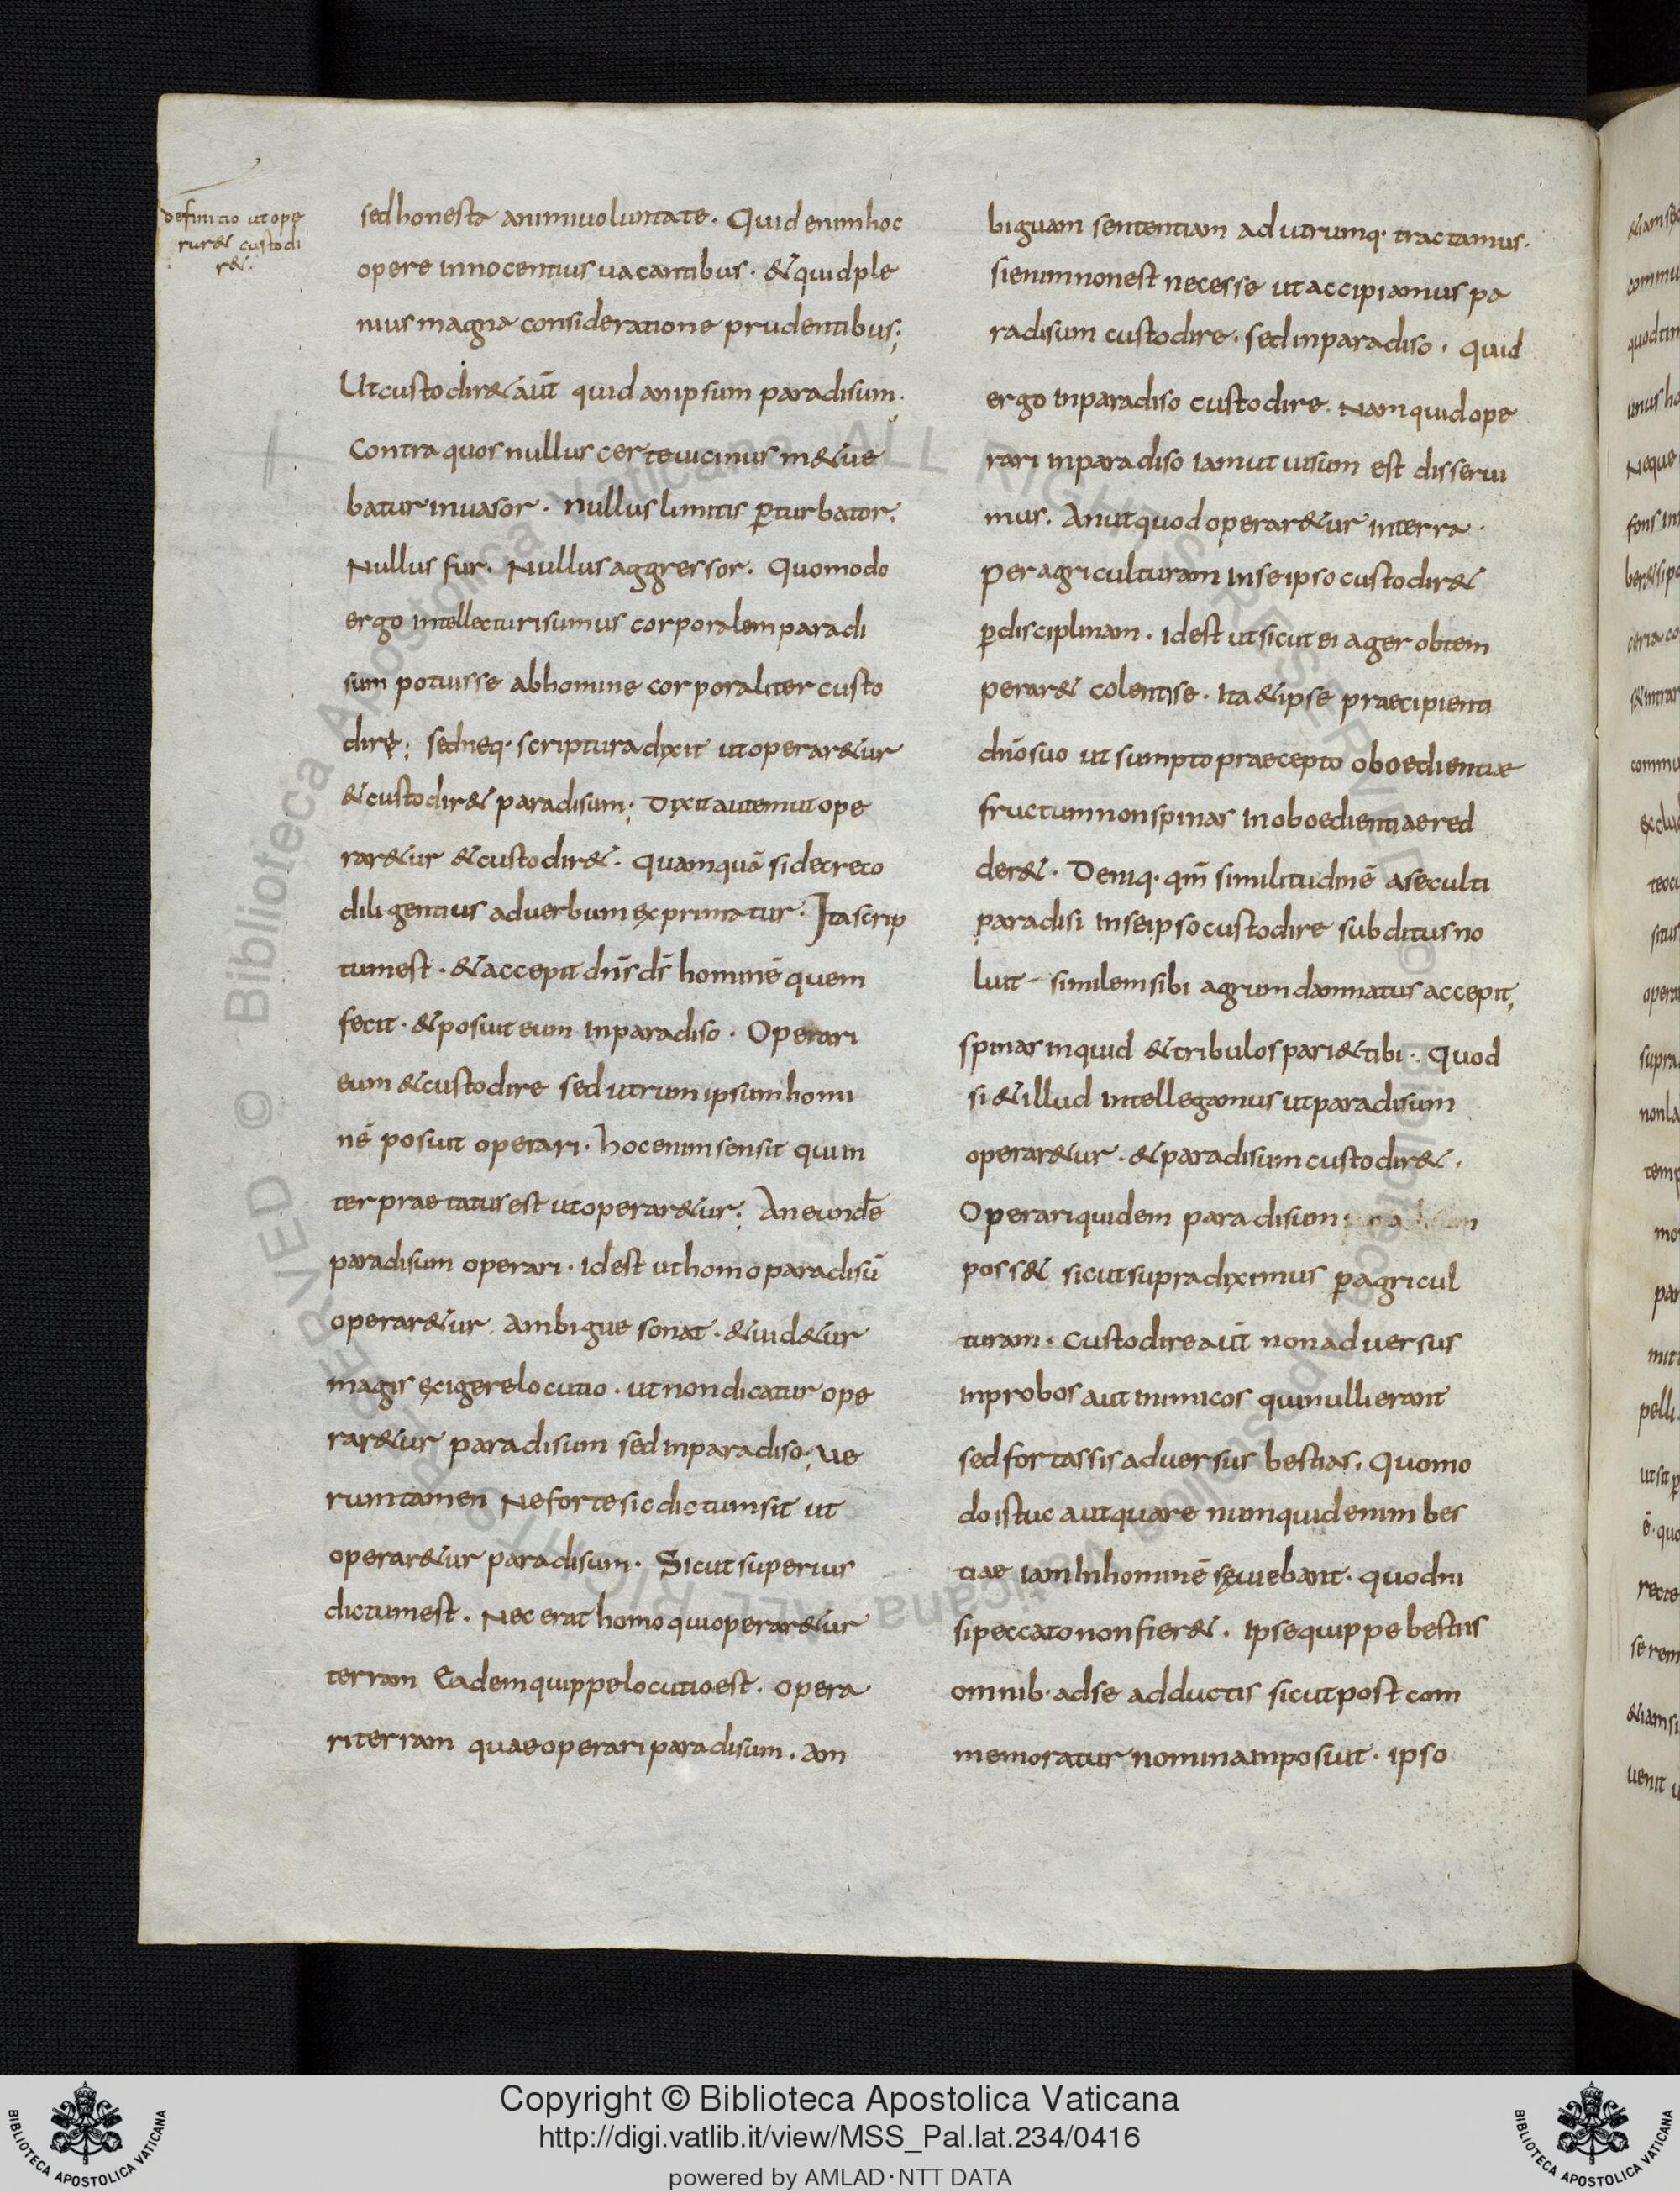 definitio ut ope
rar& custodi
r&.
sed honesta animi uoluntate. Quid enim hoc
opere innocentius uacantibus. & quid ple
nius magna consideratione prudentibus;
Ut custodir& aūt quid an ipsum paradisum.
Contra quos nullus certe uicinus m&ue
batur inuasor. Nullus limitis ꝑturbator.
Nullus fur. Nullus aggressor. Quomodo
ergo intellecturi sumus corporalem paradi
sum potuisse ab homine corporaliter custo
dirę; sed neq. scriptura dixit ut operar&ur
& custodir& paradisum; Dixit autem ut ope
rar&ur & custodir&. Quamquā si de creto
diligentius ad uerbum exprimatur. Ita scrip
tum est. & accepit dn̄s ds̄ hominē quem
fecit. & posuit eum in paradiso. Operari
eum & custodire sed utrum ipsum homi
nē posuit operari. hoc enim sensit qui in
terpraetatus est ut operar&ur; An eundē
paradisum operari. Id est ut homo paradisū
operar&ur. Ambigue sonat. & uid&ur
magis exigere locutio. ut non dicatur ope
rar&ur paradisum sed in paradiso; ue
rum tamen Ne forte sic dictum sit ut
operar&ur paradisum. Sicut superius
dictum est. Nec erat homo qui operar&ur
terram Eadem quippe locutio est. opera
ri terram quae operari paradisum. Am
biguam sententiam ad utrumq. tractamus.
si enim non est necesse ut accipiamus pa
radisum custodire. sed in paradiso. quid
ergo in paradiso custodire. Nam quid ope
rari in paradiso iam ut uisum est disserui
mus. An ut quod operar&ur in terra.
per agriculturam in se ipso custodir&
ꝑ disciplinam. Id est ut sicut ei ager obtem
perar& colenti se. Ita & ipse praecipienti
dn̄o suo ut sumpto praecepto oboedientiae
fructum non spinas inoboedientiae red
der&. Deniq. qm̄ similitudinē a se culti
paradisi in se ipso custodire subditus no
luit similem sibi agrum damnatus accepit;
spinas inquid & tribulos pari&tibi. Quod
si & illud intellegamus ut paradisum
operar&ur. & paradisum custodir&.
Operari quidem paradisum
poss& sicut supra diximus ꝑ agricul
turam. Custodire aūt non aduersus
inprobos aut inimicos qui nulli erant
sed fortassis aduersus bestias. Quomo
do istuc aut quare numquid enim bes
tiae iam in hominē sęuiebant. quod ni
si peccato non fier&. Ipse quippe bestiis
omnib. ad se adductis sicut post com
memoratur nomina inposuit. ipso
Copyright © Biblioteca Apostolica Vaticana
http://digi.vatlib.it/view/MSS_Pal.lat.234/0416
powered by AMLAD·NTT DATA